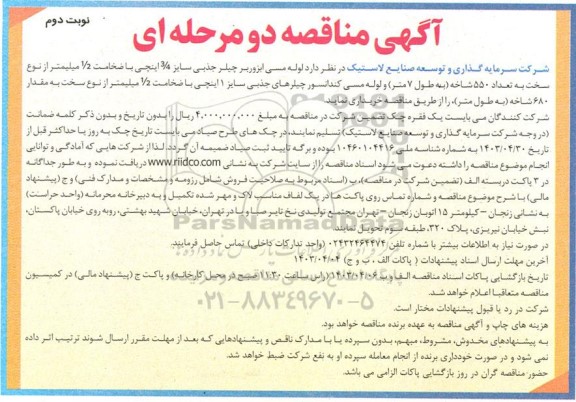 نوبت دوم
آگهی مناقصه دو مرحله ای
شرکت سرمایه گذاری و توسعه صنایع لاستیک در نظر دارد لوله مسی ابزوربر چیلر جذبی سایز ¾ اینچی با ضخامت ½ میلیمتر از نوع
سخت به تعداد ۵۵۰ شاخه (به طول ۷ متر) و لوله مسی کندانسور چیلرهای جذبی سایز ۱ اینچی با ضخامت ½ میلیمتر از نوع سخت به مقدار
۶۸۰ شاخه (به طول متر)، را از طریق مناقصه خریداری نمایند
شرکت کنندگان می بایست یک فقره چک بابت شرکت در مناقصه به مبلغ ۴,۰۰۰,۰۰۰,۰۰۰ ریال را بدون تاریخ و بدون ذکر کلمه ضمانت
(در وجه شرکت سرمایه گذاری و توسعه صنایع لاستیک) تسلیم نمایند، در چک های طرح صیاد می بایست تاریخ چک به روز یا حداکثر قبل از
تاریخ ۱۴۰۳/۰۴/۳۰ به شماره شناسه ملی ۱۰۴۶۰۱۰۴۴۱۶ بوده و برگه تایید ثبت صیاد ضمیمه آن گردد. لذا از شرکت هایی که آمادگی و توانایی
انجام موضوع مناقصه را داشته دعوت می شود اسناد مناقصه را از سایت شرکت به نشانی www.riidco.com دریافت نموده و به طور جداگانه
در ۳ پاکت دربسته الف (تضمین شرکت در مناقصه)، ب (اسناد مربوط به صلاحیت فروش شامل رزومه و مشخصات و مدارک فنی) و ج (پیشنهاد
مالی) با شرح موضوع مناقصه و شماره تماس روی پاکت ها در یک لفاف مناسب لاک و مهر شده تکمیل و به دبیرخانه محرمانه (واحد حراست)
به نشانی زنجان – کیلومتر ۱۵ اتوبان زنجان – تهران مجتمع تولیدی نخ تایر صبا و یا در تهران، خیابان شهید بهشتی، روبه روی خیابان پاکستان،
نبش خیابان نی‌ریزی، پلاک ۳۲۰، طبقه سوم تحویل نمایند.
در صورت نیاز به اطلاعات بیشتر با شماره تلفن ۰۲۴۳۲۴۶۴۴۷۴ (واحد تدارکات داخلی) تماس حاصل فرمایند.
آخرین مهلت ارسال اسناد پیشنهادات ( پاکات الف ، ب و ج) ۱۴۰۳/۰۴/۰۴
تاریخ بازگشایی پاکات اسناد مناقصه الف و ب ۱۴۰۳/۰۴/۰۶ (راس ساعت ۱۱:۳۰ صبح در محل کارخانه) و پاکت ج (پیشنهاد مالی) در کمیسیون
مناقصه متعاقبا اعلام خواهد شد.
شرکت در رد یا قبول پیشنهادات مختار است.
هزینه های چاپ و آگهی مناقصه به عهده برنده مناقصه خواهد بود.
به پیشنهادهای مخدوش، مشروط، مبهم، بدون سپرده یا با مدارک ناقص و پیشنهادهایی که بعد از مهلت مقرر ارسال شوند ترتیب اثر داده
نمی شود و در صورت خودداری برنده از انجام معامله سپرده او به نفع شرکت ضبط خواهد شد.
حضور مناقصه گران در روز بازگشایی پاکات الزامی می باشد.
ParsNamadData
۰۲۱-۸۸۳۴۹۶۷۰-۵